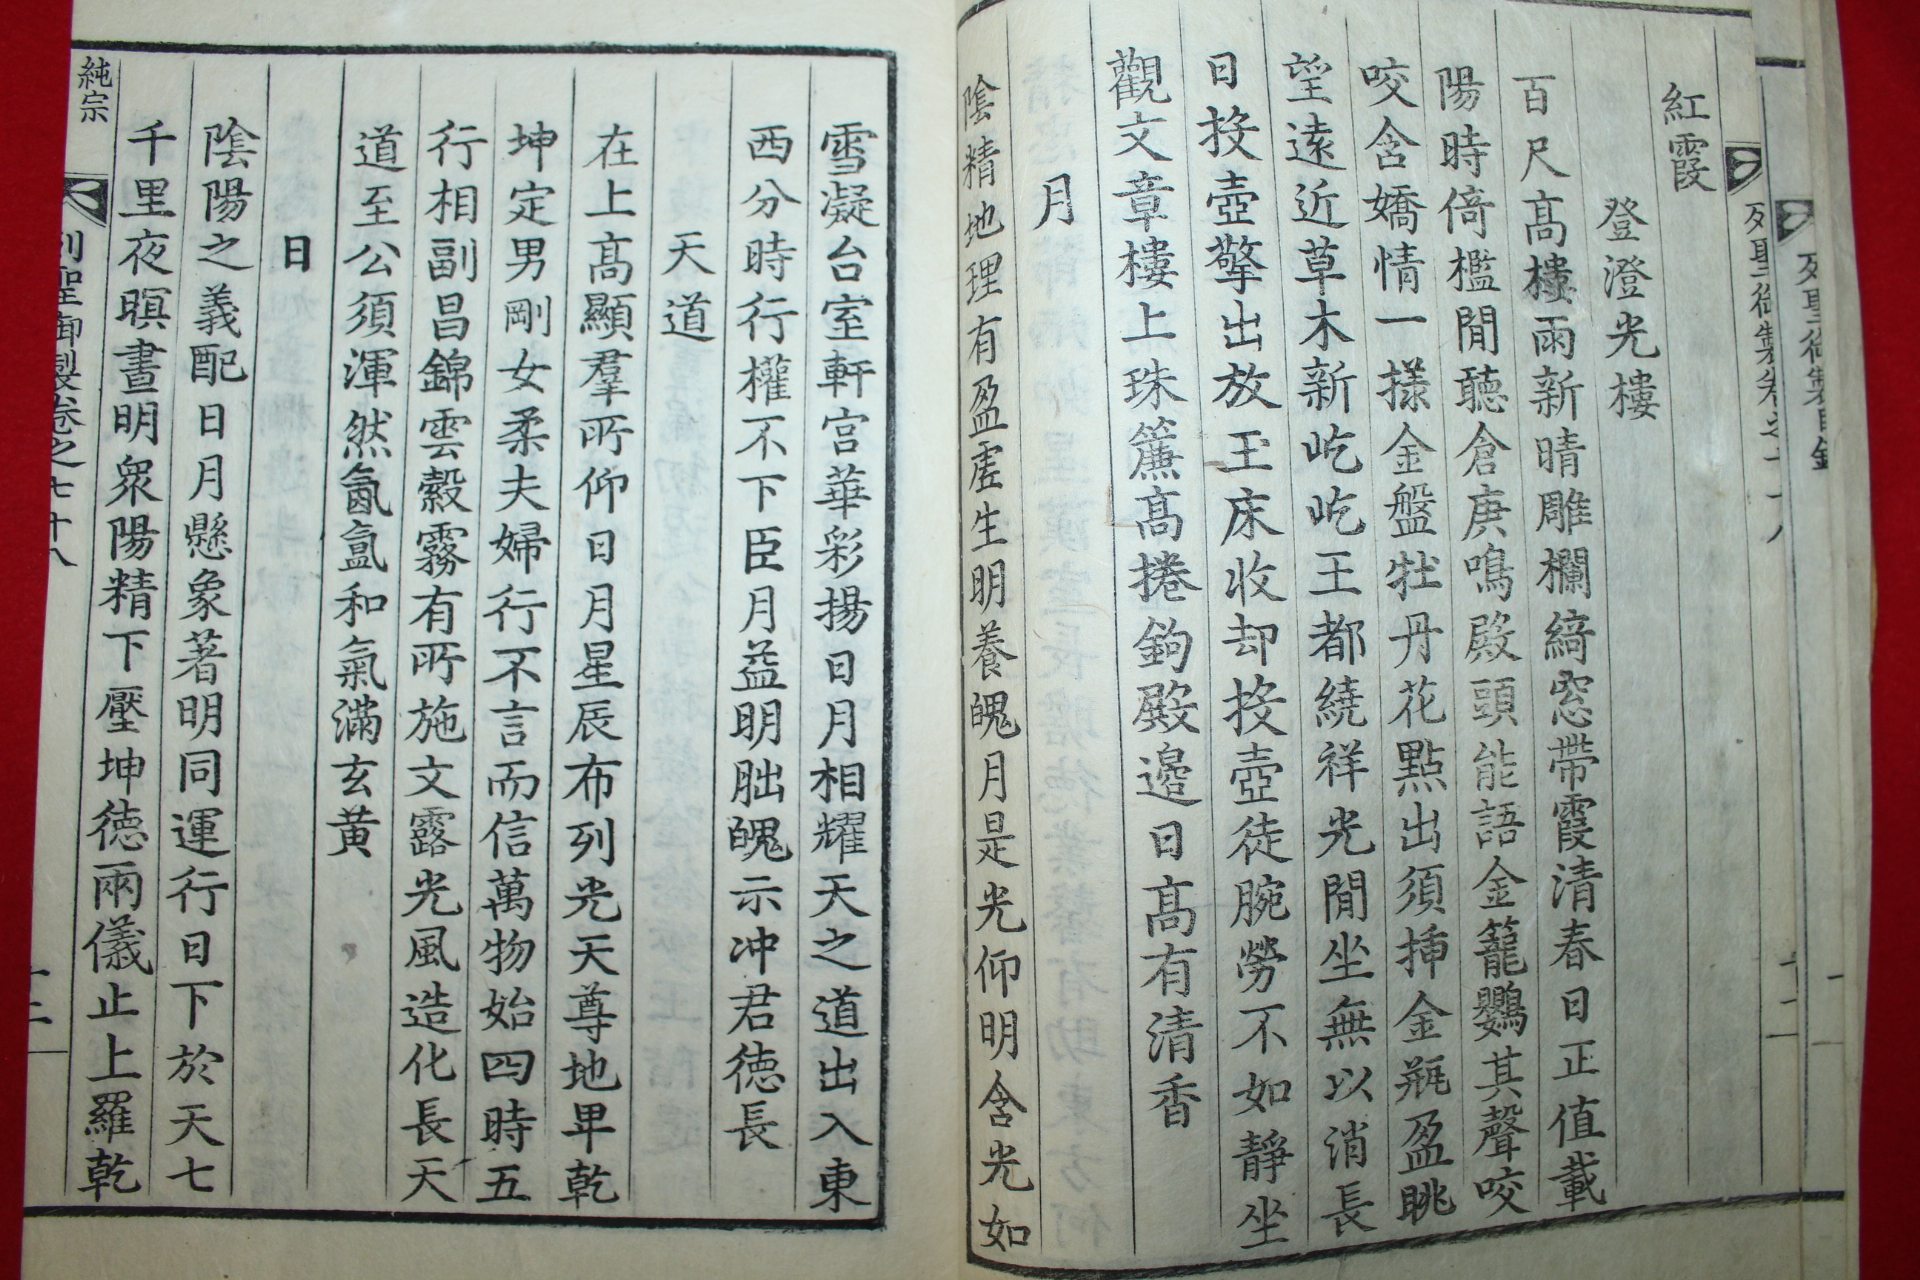 紅霞
登澄光樓
百尺高樓雨新晴雕欄綺窓帶霞清春日正值載
陽時倚檻閒聽倉庚鳴殿頭能語金籠鸚其聲咬
咬含嬌情一㨾金盤牡丹花點出須揷金甁盈眺
望遠近草木新屹屹王都繞祥光閒坐無以消長
日投壺擎出放玉床收却投壺徒腕勞不如靜坐
觀文章樓上珠簾高捲鉤殿邊日高有清香
月
陰精地理有盈虛生明養魄月是光仰明含光如
雪凝台室軒宮華彩揚日月相耀天之道出入東
西分時行權不下臣月益明朏魄示冲君德長
天道
在上高顯羣所仰日月星辰布列光天尊地卑乾
坤定男剛女柔夫婦行不言而信萬物始四時五
行相副昌錦雲縠霧有所施文露光風造化長天
道至公須渾然氤氳和氣滿玄黃
日
陰陽之義配日月懸象著明同運行日下於天七
千里夜暝晝明衆陽精下壓坤德兩儀止上羅乾
純宗
列聖御製卷之七十八
列聖御製目錄
十二